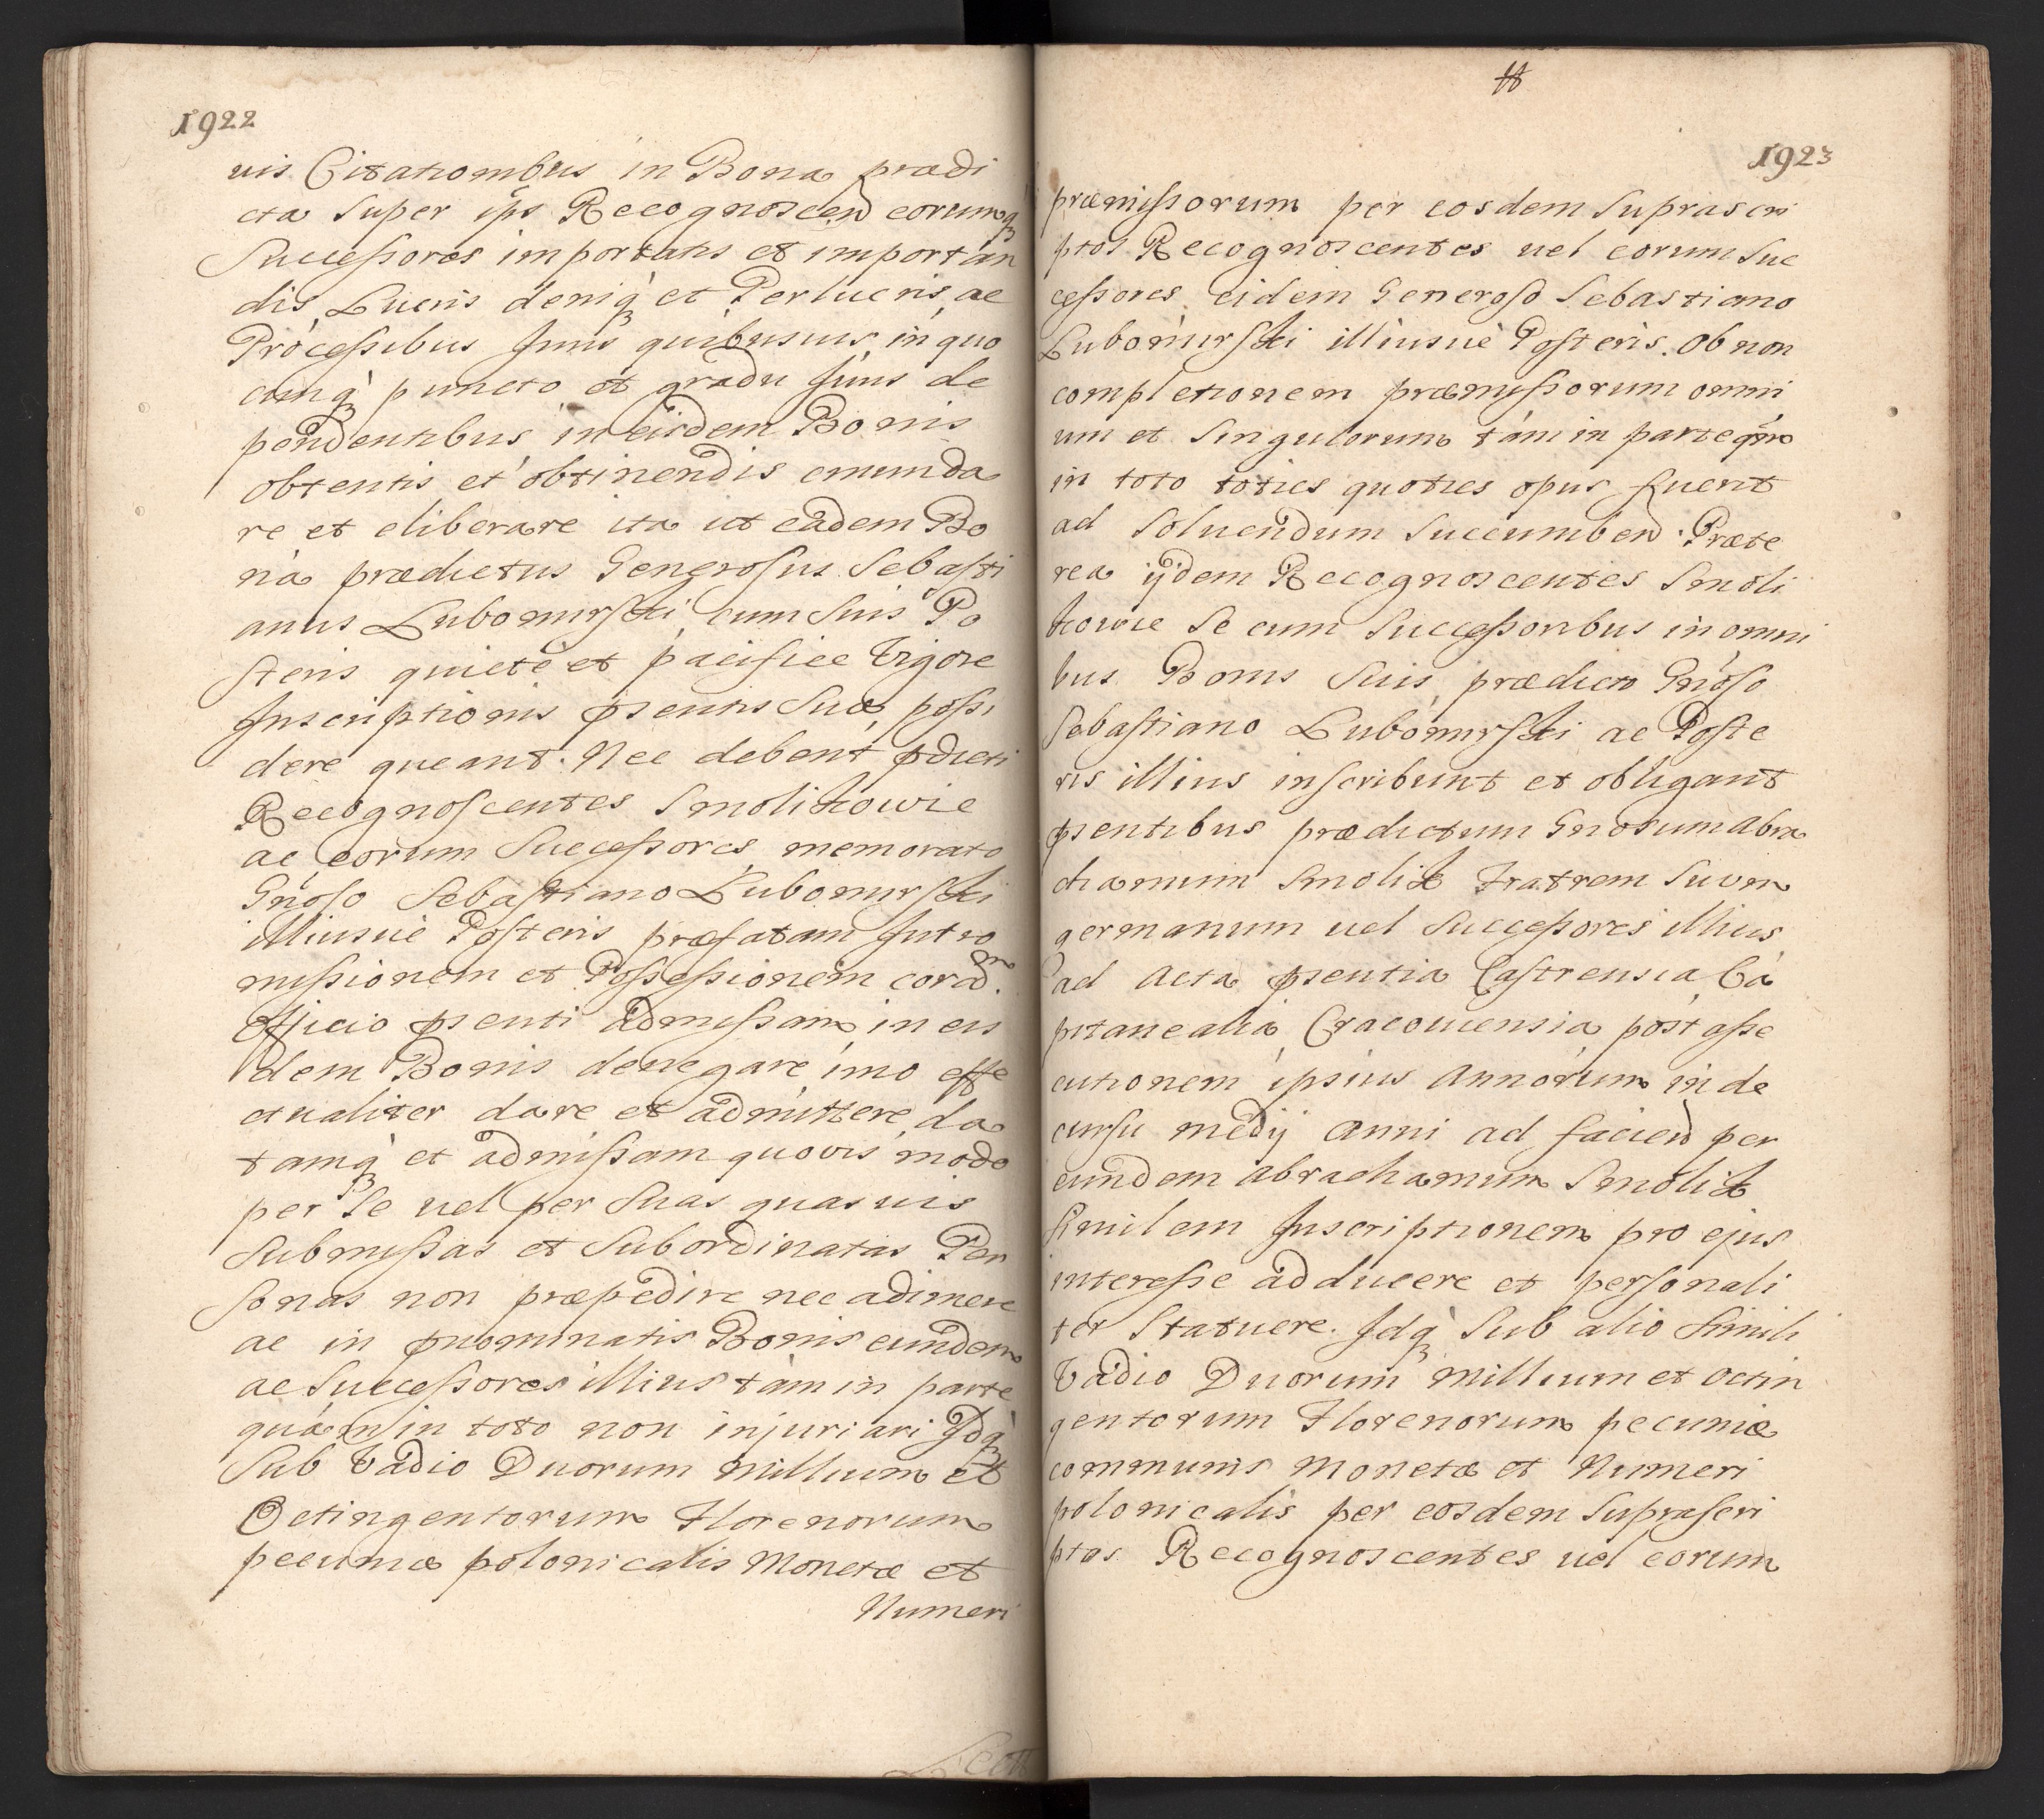 1922
uis Citationibus in Bona prædi
cta Super ips Recognoscen eorumq
Successores importatis et importan
dis Lucris deniq et Perlucris, ac
Processibus Juris quibusuis in quo
cunq puncto et gradu Juris de
pendentibus in eisdem Bonis
obtentis et obtinendis emunda
re et eliberare ita ut eadem Bo
na prædictus Generosus Sebasti
anus Lubomirski cum Suis Po
steris quiete et pacifice Vigore
Inscriptionis pntis Suæ possi
dere queant. Nec debent pdicti
Recognoscentes Smolikowie
ac eorum Successores memorato
Gnoso Sebastiano Lubomirski
illiusue Posteris præfatam Intro
missionem et Possessionem corad.
Officio psenti admissam in eis
dem Bonis denegare imo effe
ctualiter dare et admittere, da
tamq et admissam quovis modo
per Se uel per Suas quasuis
Submissas et Subordinatas Per
sonas non præpedire nec adimere
ac in pnominatis Bonis eundem
ac Successores illius tàm in parte
quàm in toto non injuriari Idq
Sub Vadio Duorum millium et
Octingentorum Florenorum
pecuniæ polonicalis Monetæ et
Numeri
1923
præmissorum per eosdem Suprascri
ptos Recognoscentes uel eorum Suc
cessores eidem Generoso Sebastiano
Lubomirski illiusuè Posteris. Ob non
completionem præmissorum omni
um et Singulorum tàm in parte qm
in toto toties quoties opus fuerit
ad Soluendum Succumben. Præte
rea ijdem Recognoscentes Smoli
kowie Se cum Successoribus in omni
bus Bonis Suis prædicto Gnoso
Sebastiano Lubomirski ac Poste
ris illius inscribunt et obligant
psentibus prædictum Gnosum Abra
chamum Smolik Fratrem Suum
germanum uel Successores illius
ad Acta psentia Castrensia Ca
pitanealia Cracouiensia post asse
cutionem ipsius Annorum in de
cursu medij Anni ad facien per
eundem Abrachamum Smolik
Similem Inscriptionem pro ejus
interesse adducere et personali
ter Statuere. Idq Sub alio Simili
Vadio Duorum Millium et Octin
gentorum Florenorum pecuniæ
communis Monetæ et Numeri
polonicalis per eosdem Suprascri
ptos Recognoscentes uel eorum